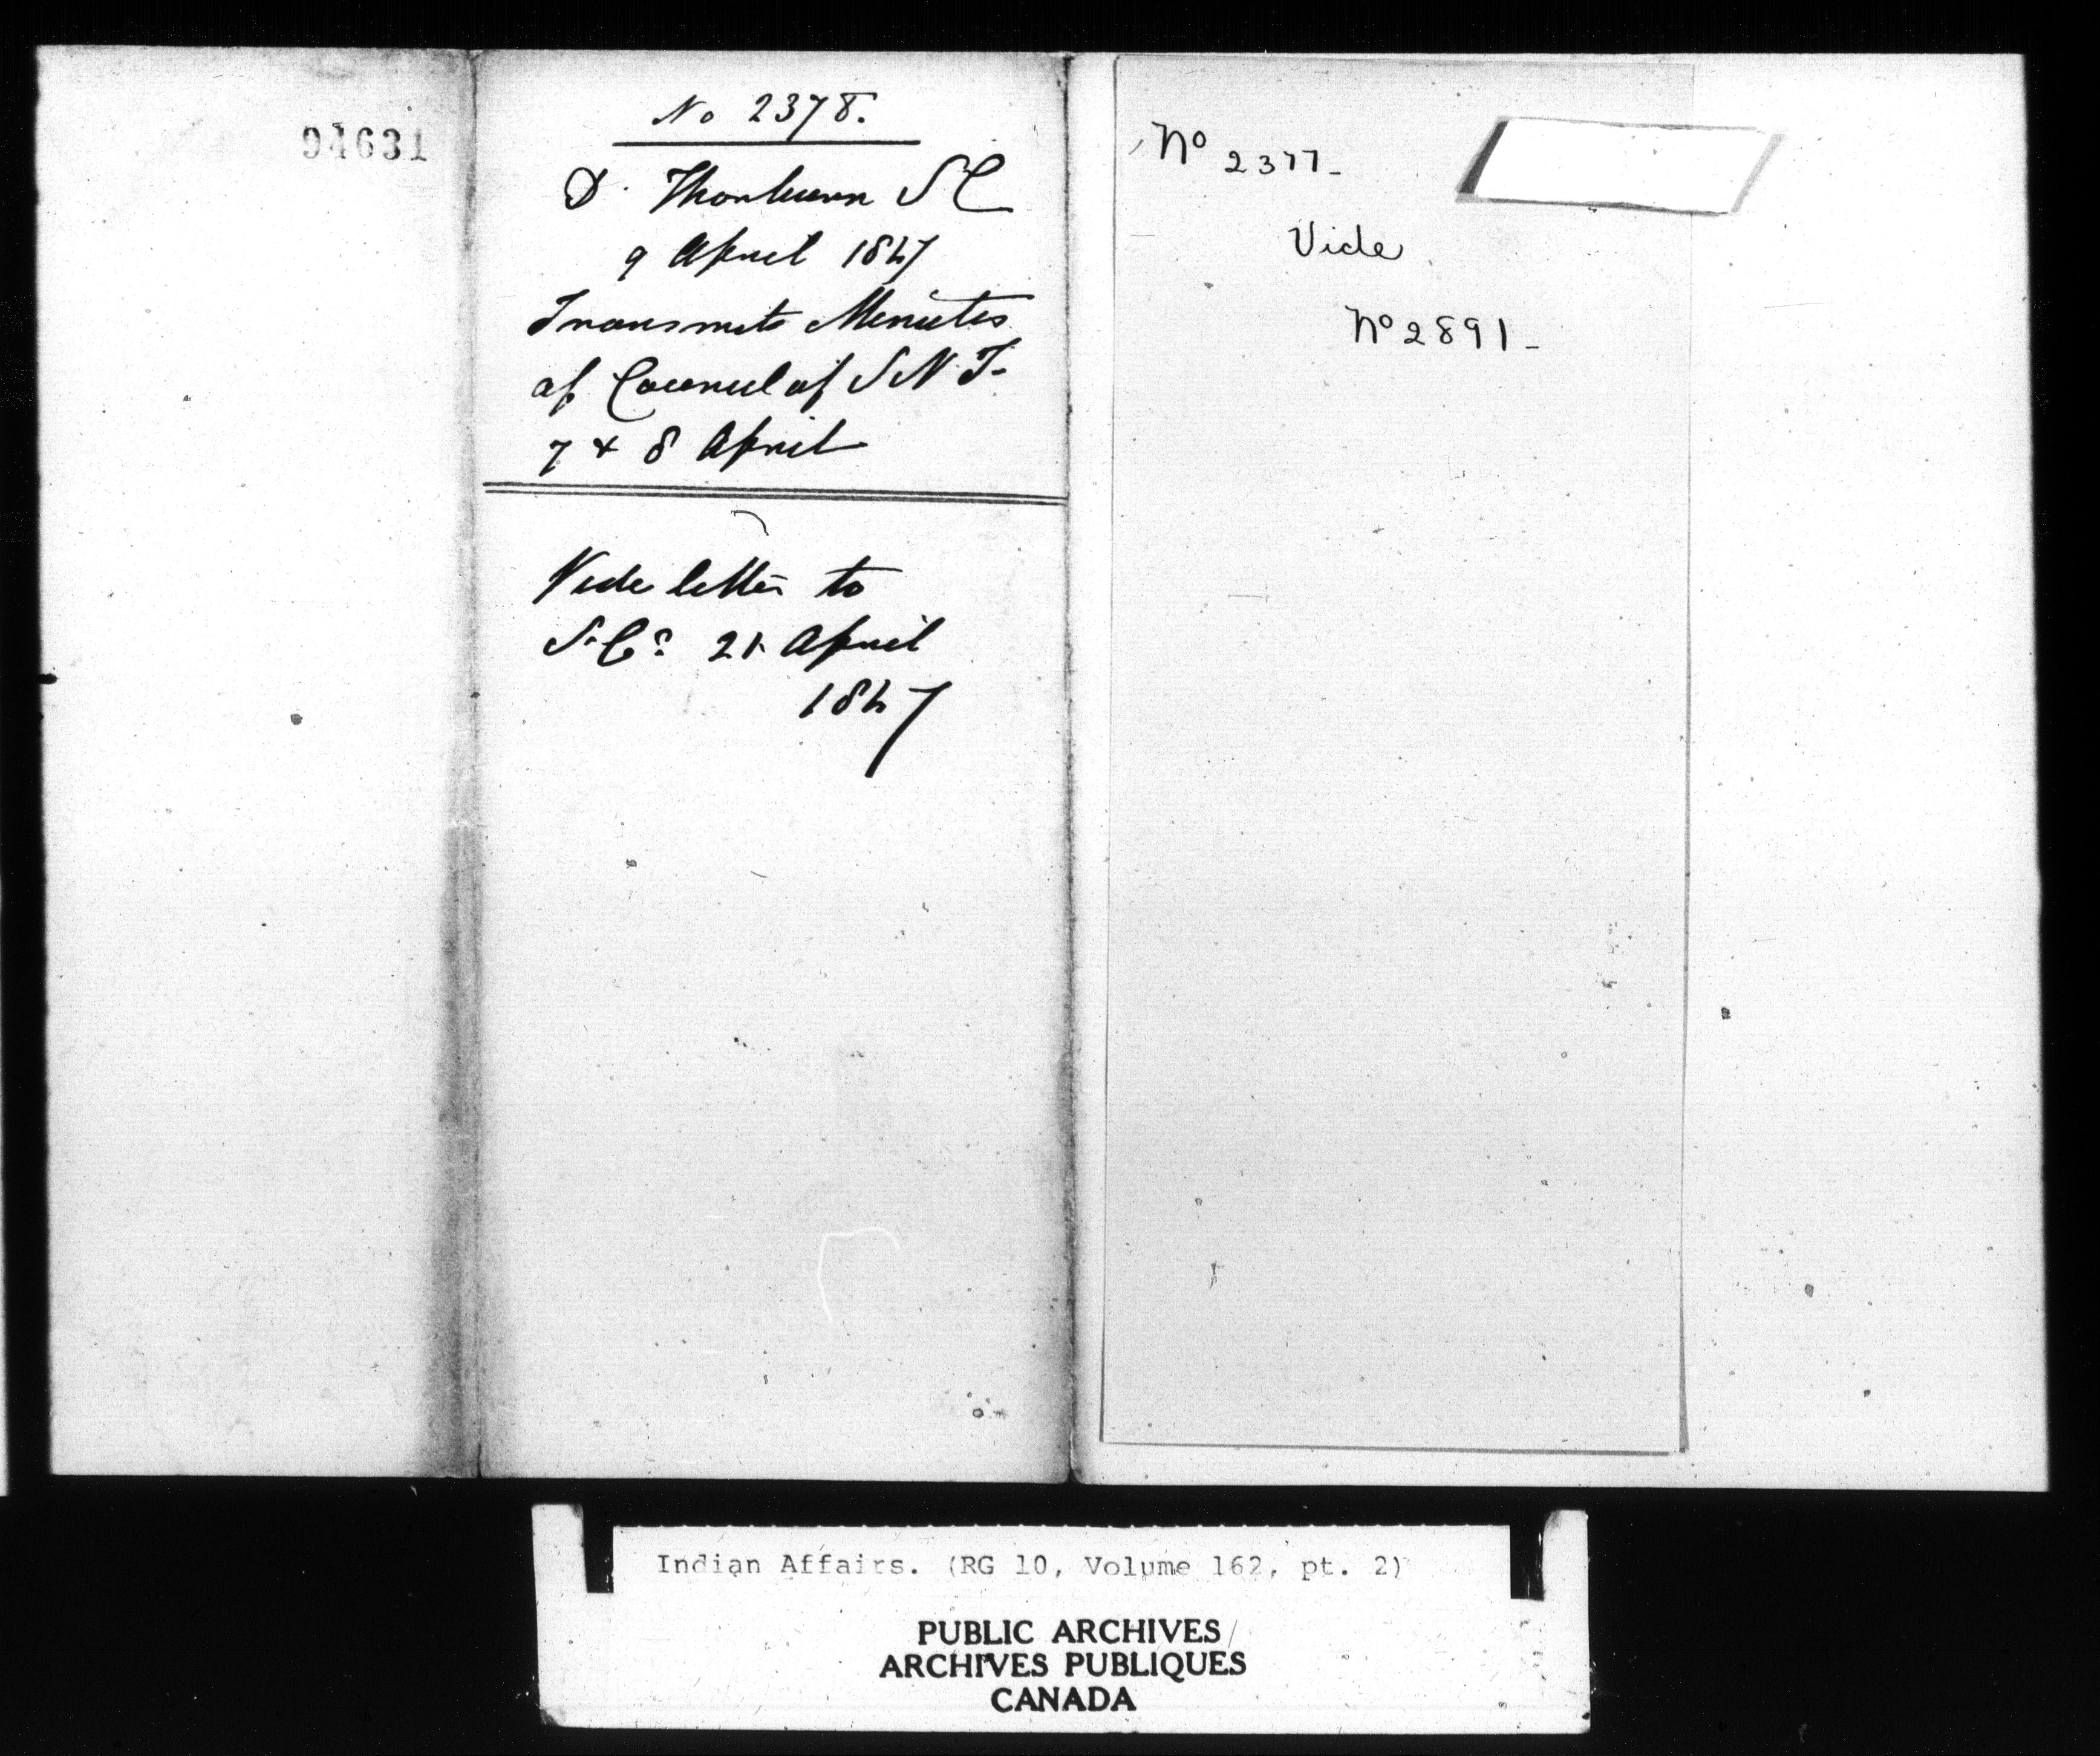 94631
No 2378.
D. Thorburn S C
9 April 1847
Transmits Minutes
of Council of S N I.
7 & 8 April
Vide letter to
S. Co. 21 April
1847
No 2377-
Vide
No 2891-
Indian Affairs. (RG 10, Volume 162, pt. 2)
PUBLIC ARCHIVES
ARCHIVES PUBLIQUES
CANADA